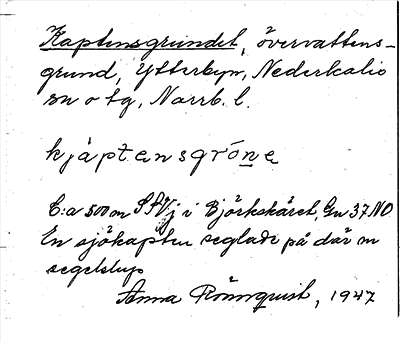 Kaptensgrundet, övervattens-
grund, Ytterbyn, Nederkalix
sn o tg, Norrb. l.
kjáptensgróne
C:a 500 m i Björkskäret, Gw 37 NO
En sjökapten seglade på där m
segelslup
Anna Rönnquist, 1947